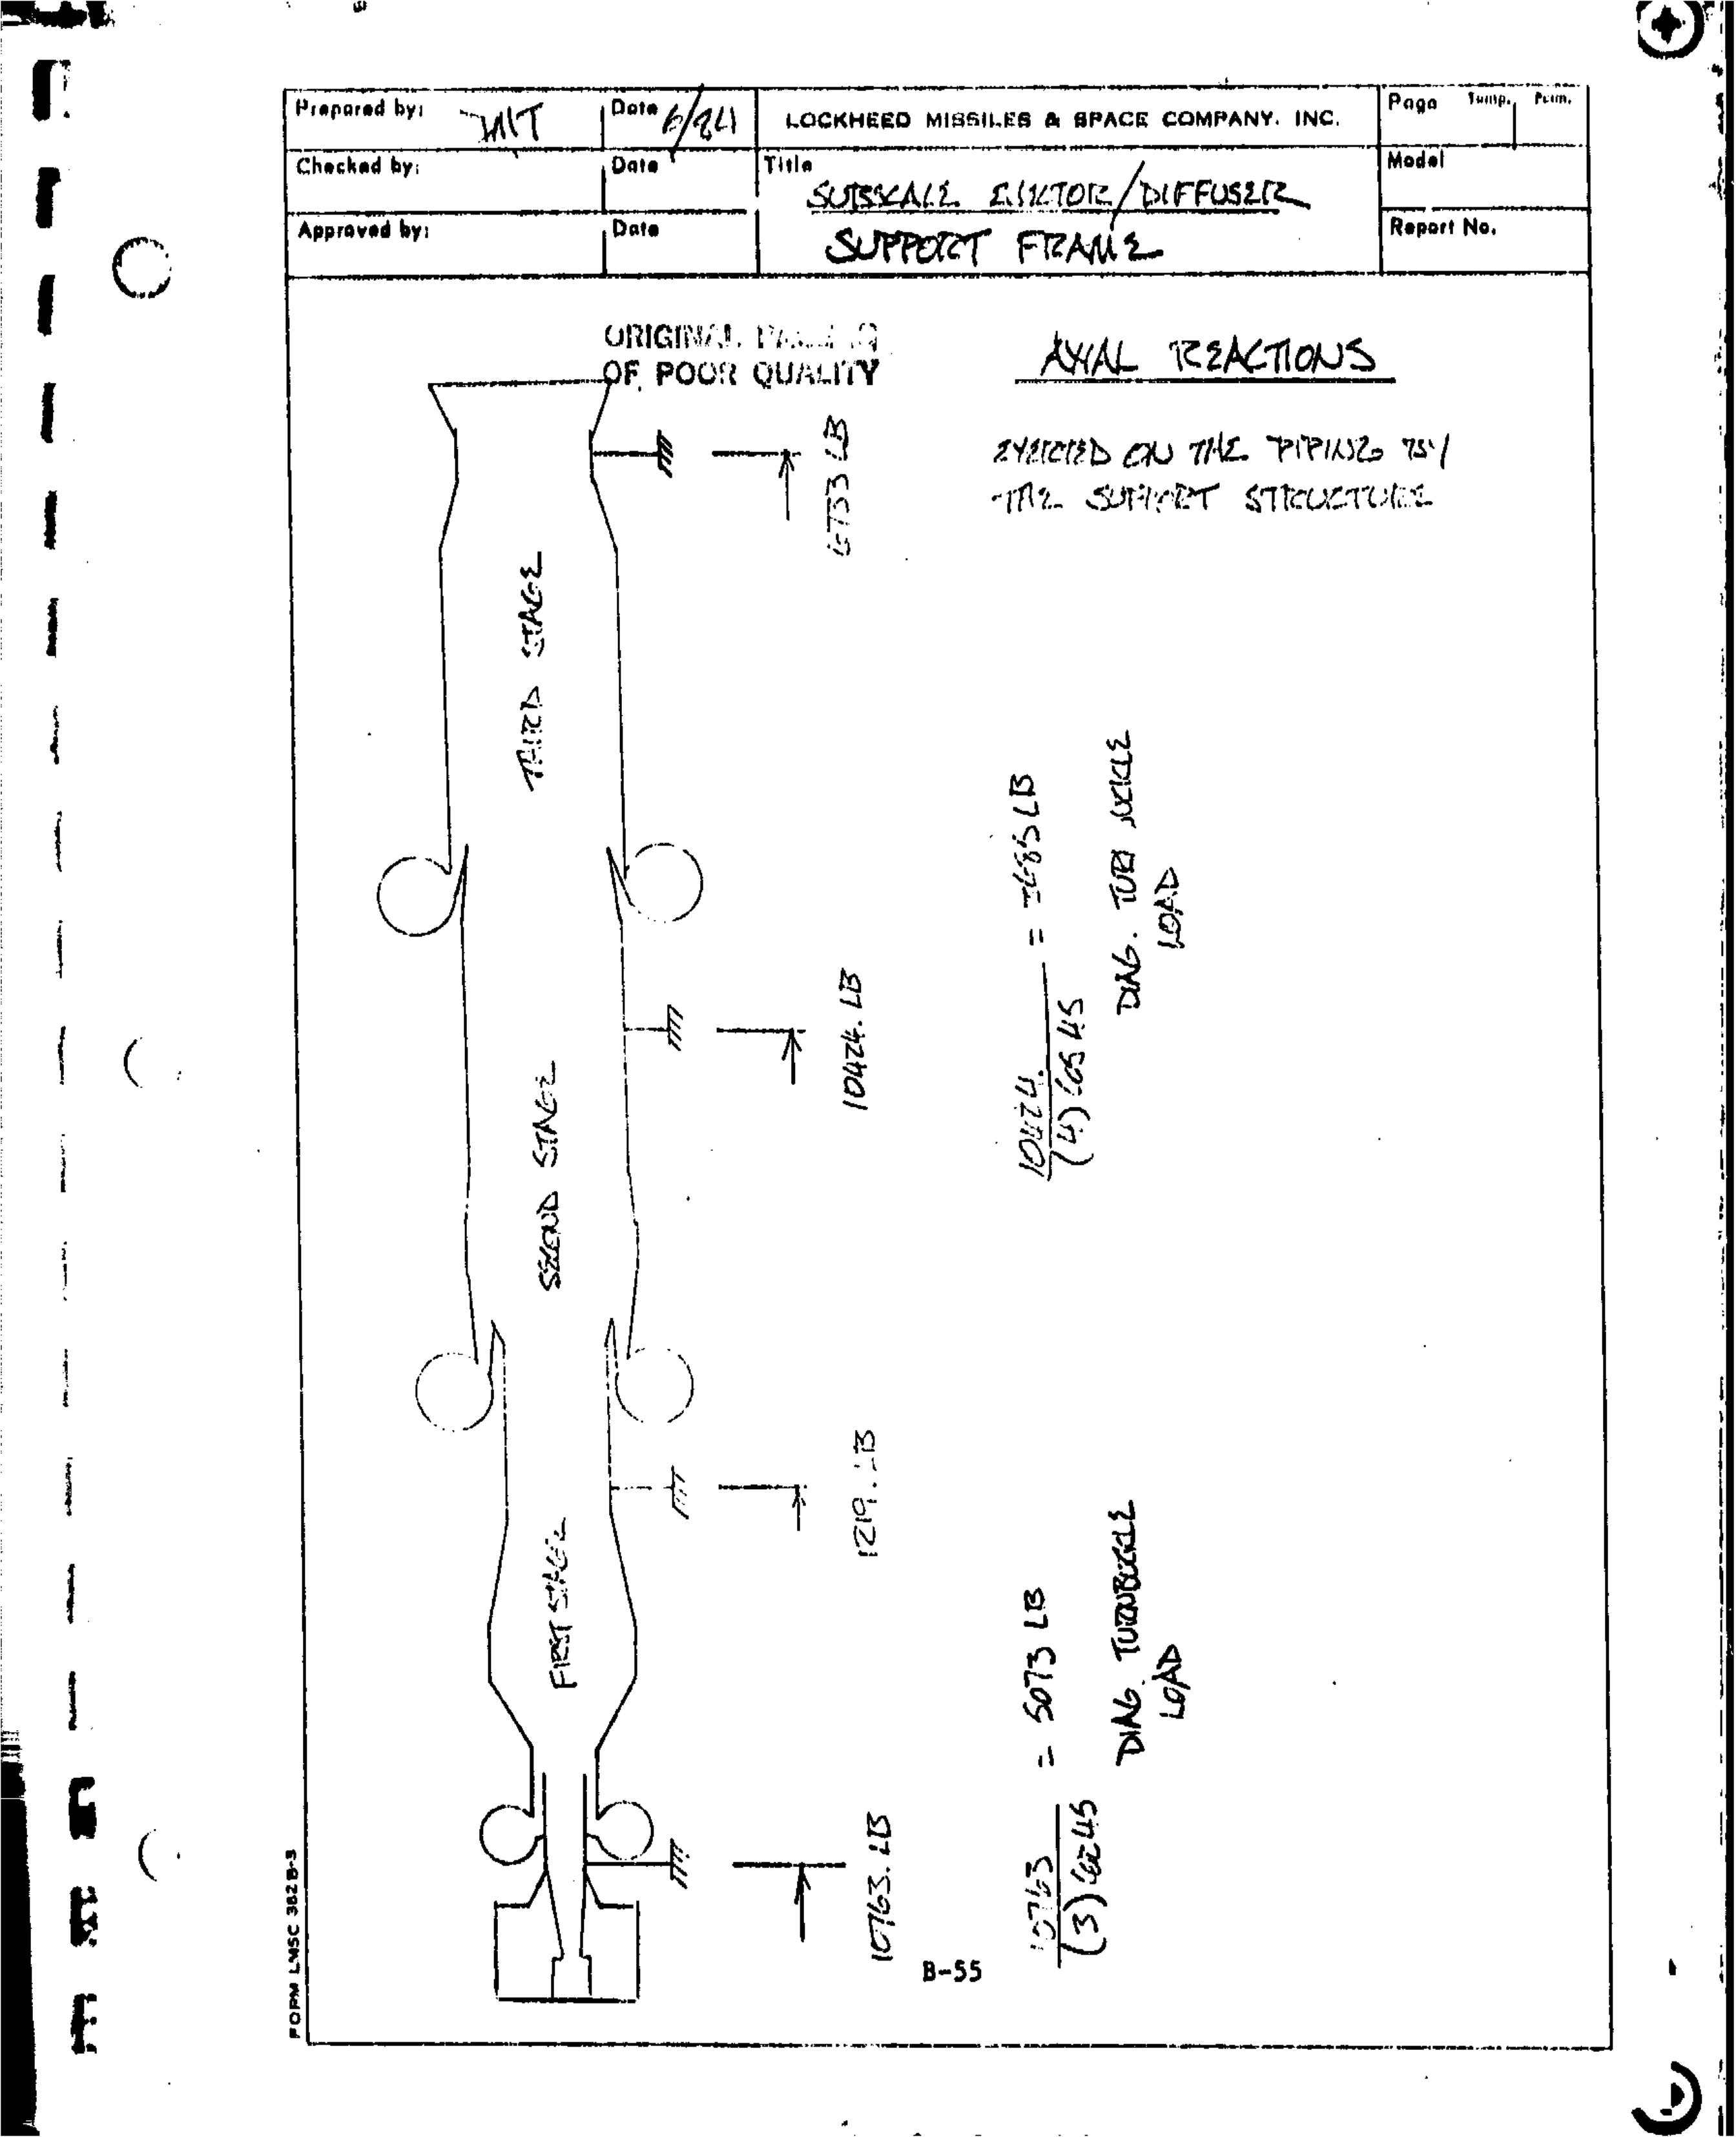 Prepared by:
Date 6/84
LOCKHEED MISSILES & SPACE COMPANY. INC.
Page Temp. Perm.
Checked by:
Date
Title
SUBSCALE EJECTOR/DIFFUSER
SUPPORT FRAME
Model
Approved by:
Date
Report No.
ORIGINAL PAGE IS
OF POOR QUALITY
AXIAL REACTIONS
EXERTED ON THE PIPING BY
THE SUPPORT STRUCTURE
6733 LB
THIRD STAGE
10424. LB
SECOND STAGE
10424.
(4) COS 45
= 3685 LB
DIAG. TURNBUCKLE
LOAD
1219. LB
FIRST STAGE
10763. LB
10763
(3) COS 45
= 5073 LB
DIAG. TURNBUCKLE
LOAD
B-55
FORM LMSC 382 B-3